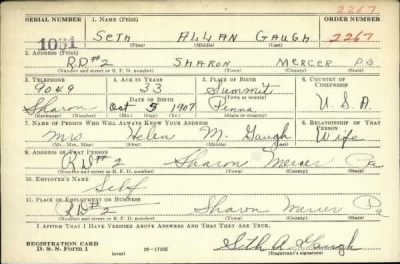 2267
SERIAL NUMBER 1. NAME (Print) ORDER NUMBER
1031 SETH ALLAN GAUGH 2267
(First) (Middle) (Last)
2. ADDRESS (Print)
RD#2 SHARON MERCER PA
(Number and street or R. F. D. number) (Town) (County) (State)
3. TELEPHONE 4. AGE IN YEARS 5. PLACE OF BIRTH 6. COUNTRY OF CITIZENSHIP
9049 33 Summit
DATE OF BIRTH (Town or county)
Sharon Oct 5 1907 Penna U.S.A.
(Exchange) (Number) (Mo.) (Day) (Yr.) (State or country)
7. NAME OF PERSON WHO WILL ALWAYS KNOW YOUR ADDRESS 8. RELATIONSHIP OF THAT PERSON
Mrs Helen M. Gaugh Wife
(Mr., Mrs., Miss) (First) (Middle) (Last)
9. ADDRESS OF THAT PERSON
RD#2 Sharon Mercer Pa
(Number and street or R. F. D. number) (Town) (County) (State)
10. EMPLOYER'S NAME
Self
11. PLACE OF EMPLOYMENT OR BUSINESS
RD#2 Sharon Mercer Pa
(Number and street or R. F. D. number) (Town) (County) (State)
I AFFIRM THAT I HAVE VERIFIED ABOVE ANSWERS AND THAT THEY ARE TRUE.
REGISTRATION CARD
D. S. S. Form 1 16-17105 Seth A. Gaugh
(over) (Registrant's signature)